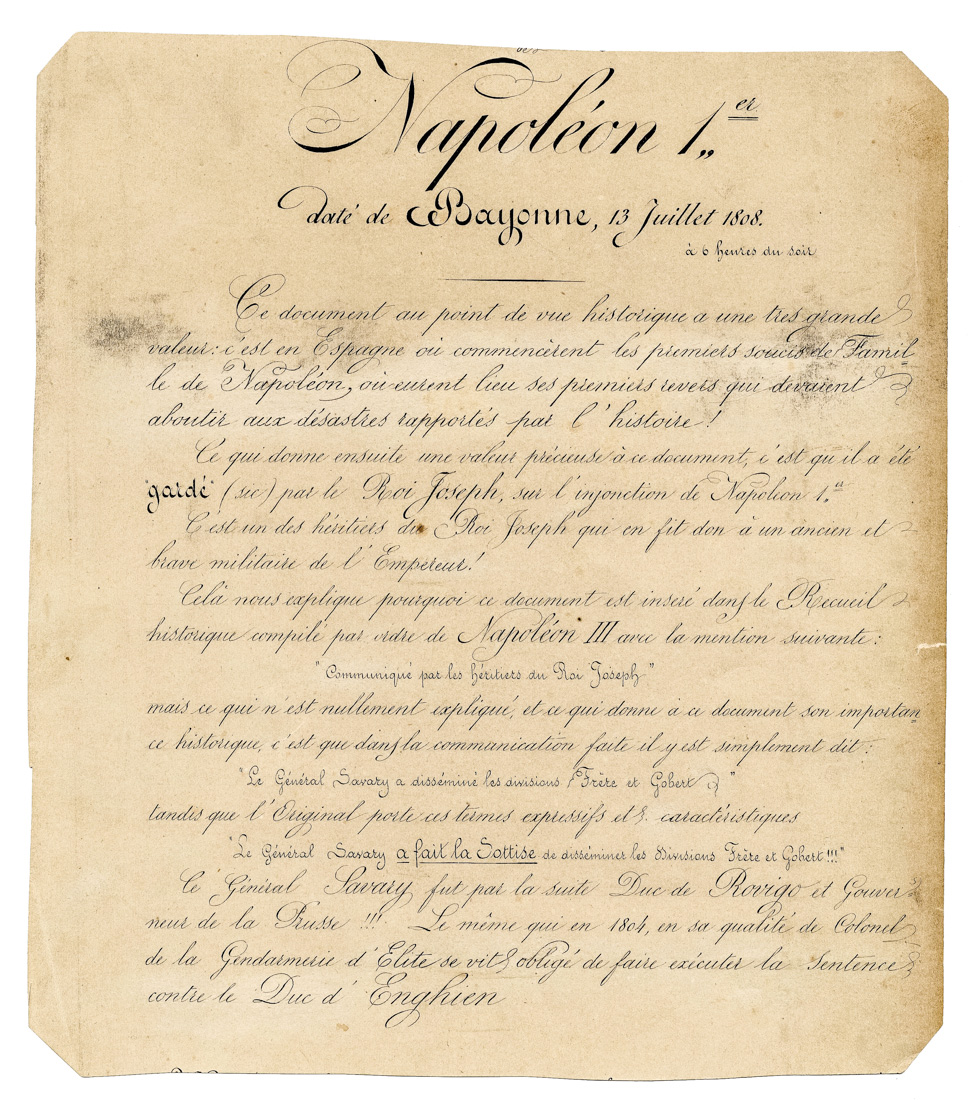 Napoléon 1.er
daté de Bayonne, 13 Juillet 1808.
à 6 heures du soir
Ce document au point de vue historique a une tres grande
valeur: c'est en Espagne où commencèrent les premiers soucis de Famil-
le de Napoléon, où eurent lieu ses premiers revers qui devaient
aboutir aux désastres rapportés par l'histoire!
Ce qui donne ensuite une valeur précieuse à ce document, c'est qu'il a été
"gardé" (sic) par le Roi Joseph, sur l'injonction de Napoléon 1.er
C'est un des héritiers du Roi Joseph qui en fit don à un ancien et
brave militaire de l'Empereur!
Celà nous explique pourquoi ce document est inséré dans le Recueil
historique compilé par ordre de Napoléon III avec la mention suivante:
"Communiqué par les héritiers du Roi Joseph"
mais ce qui n'est nullement expliqué, et ce qui donne à ce document son importan-
ce historique, c'est que dans la communication faite il y est simplement dit:
"Le Général Savary a disséminé les divisions Frère et Gobert"
tandis que l'Original porte ces termes expressifs et caractéristiques
"Le Général Savary a fait la Sottise de disséminer les Divisions Frère et Gobert!!!"
Le Général Savary fut par la suite Duc de Rovigo et Gouver-
neur de la Prusse!!! Le même qui en 1804, en sa qualité de Colonel
de la Gendarmerie d'Elite se vit obligé de faire exécuter la Sentence
contre le Duc d'Enghien